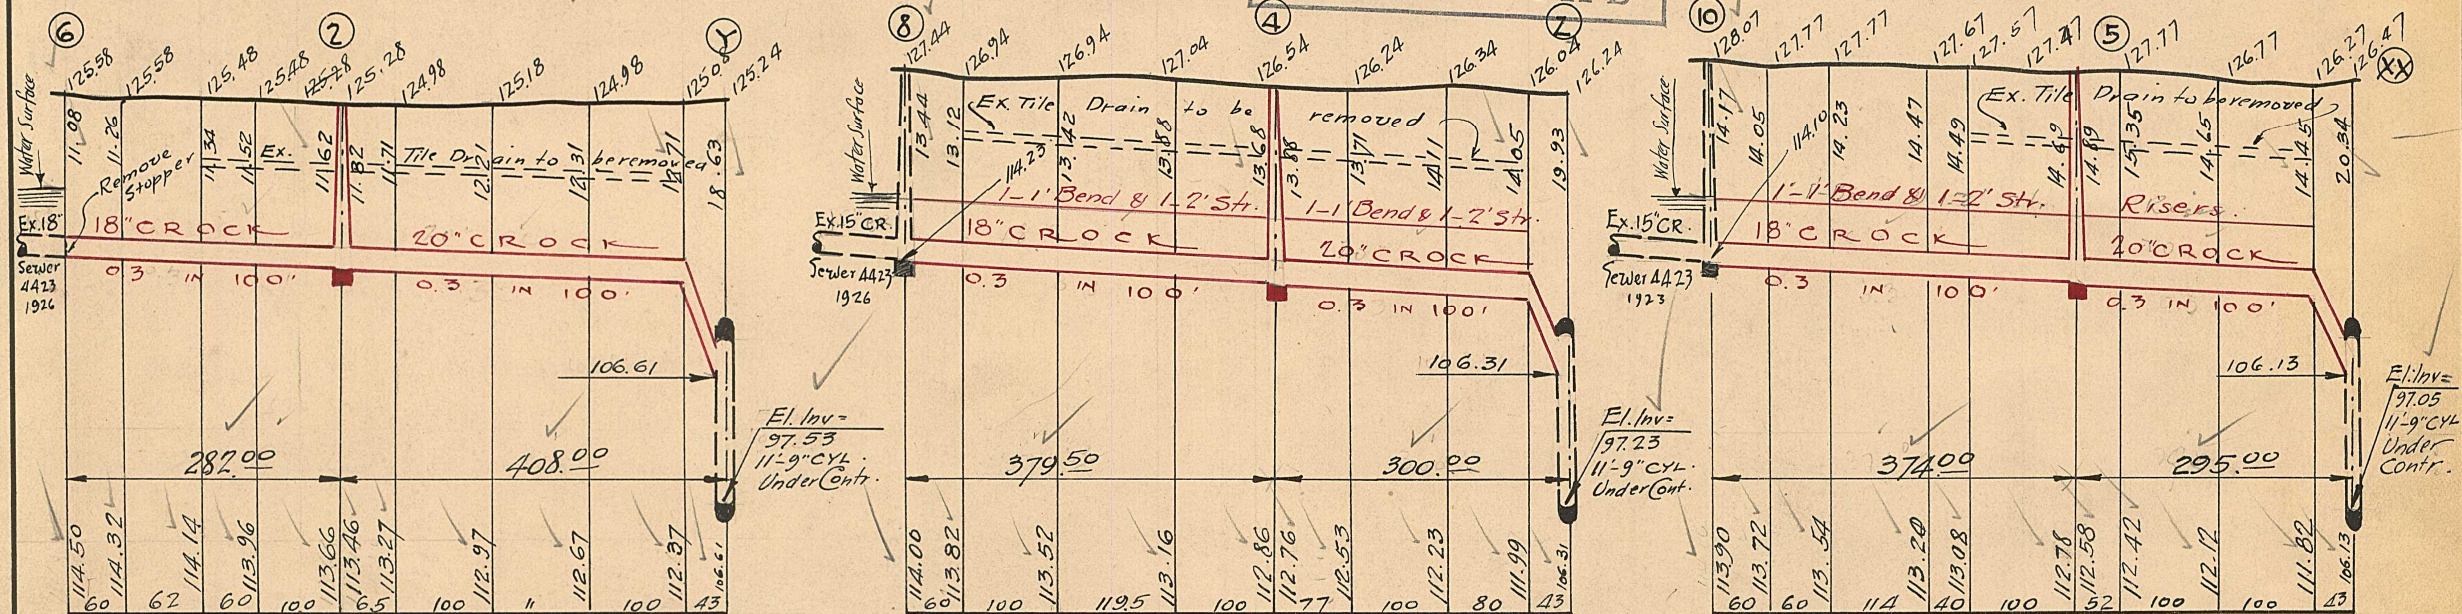 6
125.58
125.58
125.48
125.48
125.28
2
125.28
124.98
125.18
124.98
Y
125.24
Water Surface
11.08
11.26
11.34
11.52
11.62
11.82
11.71
12.21
12.31
12.71
18.63
Ex. Tile Drain to be removed
Remove
Stopper
Ex.18"
18" CROCK
20" CROCK
Sewer
4423
1926
0.3 IN 100'
0.3 IN 100'
106.61
El. Inv =
97.53
11'-9" CYL.
Under Contr.
282.00
408.00
114.50
114.32
114.14
113.96
113.66
113.46
113.27
112.97
112.67
112.37
106.61
60 62 60 100 65 100 " 100 43
8
127.44
126.94
126.94
127.04
4
126.54
126.24
126.34
Z
126.04
126.24
Water Surface
13.44
13.12
13.42
13.88
13.68
13.88
13.71
14.11
14.05
19.93
Ex. Tile Drain to be removed
114.23
1-1' Bend & 1-2' Str.
1-1' Bend & 1-2' Str.
Ex.15" CR.
18" CROCK
20" CROCK
Sewer 4423
1926
0.3 IN 100'
0.3 IN 100'
106.31
El. Inv =
97.23
11'-9" CYL.
Under Cont.
379.50
300.00
114.00
113.82
113.52
113.16
112.86
112.76
112.53
112.23
111.99
106.31
60 100 119.5 100 77 100 80 43
10
128.07
127.77
127.77
127.67
127.57
127.47
5
127.77
126.77
126.27
126.47
XX
Water Surface
14.17
14.05
14.23
14.47
14.49
14.69
14.89
15.35
14.65
14.45
20.34
114.10
Ex. Tile Drain to be removed
1'-1' Bend & 1-2' Str. Risers.
Ex.15" CR.
18" CROCK
20" CROCK
Sewer 4423
1923
0.3 IN 100'
0.3 IN 100'
106.13
El. Inv =
97.05
11'-9" CYL
Under
Contr.
374.00
295.00
113.90
113.72
113.54
113.20
113.08
112.78
112.58
112.42
112.12
111.82
106.13
60 60 114 40 100 52 100 100 43